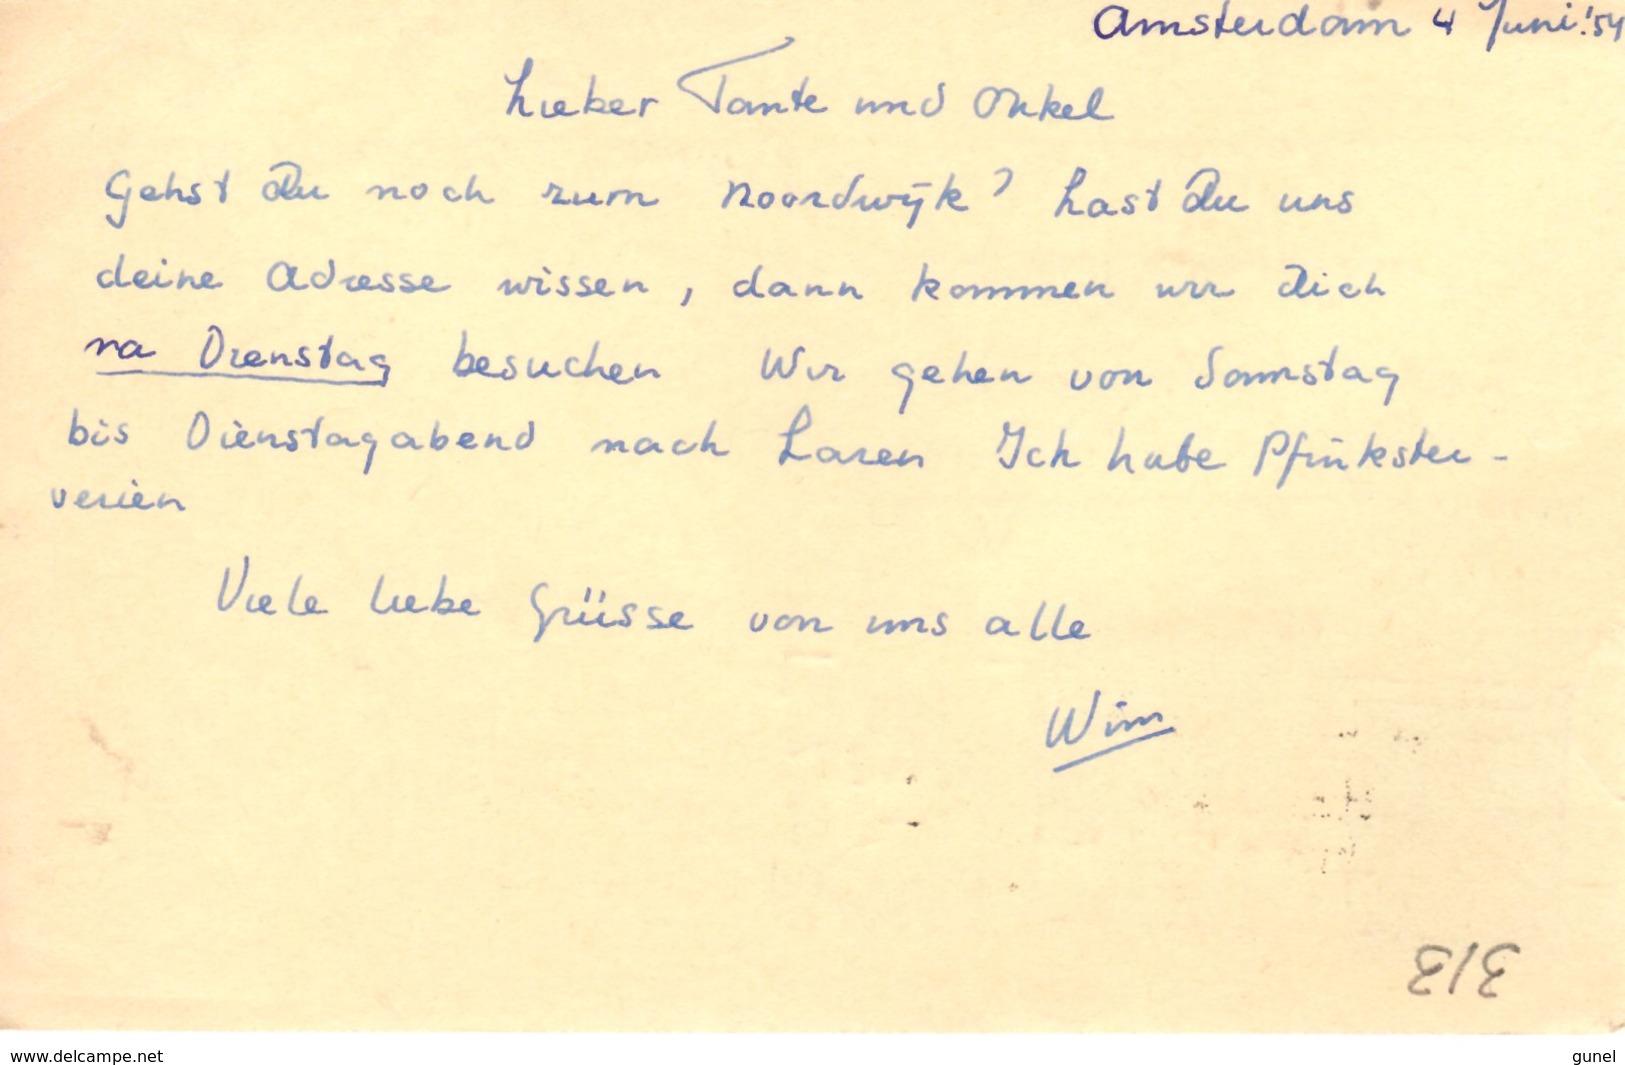 Amsterdam 4 Juni '54
Lieber Tante und Onkel
Gehst Du noch zum Noordwijk? Last Du uns
deine Adresse wissen, dann kommen wir Dich
na Dienstag besuchen Wir gehen von Sonnstag
bis Dienstagabend nach Laren Ich habe Pfinkster-
verien
Viele liebe Grüsse von uns alle
Wim
www.delcampe.net
gunel